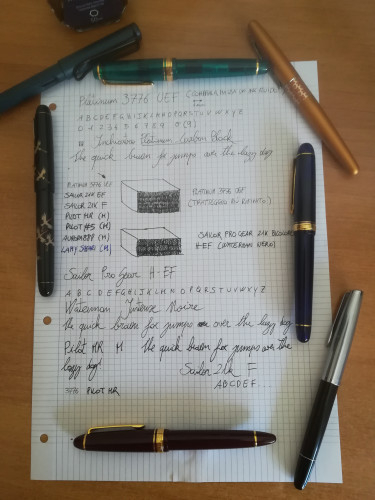 Platinum 3776 UEF
A B C D E F G H I J K L M N O P Q R S T U V W X Y Z
0 1 2 3 4 5 6 7 8 9 0 (9)
Inchiostro Platinum Carbon Black
the quick brown fox jumps over the lazy dog
PLATINUM 3776 UEF
SAILOR 21K EF
SAILOR 21K F
PILOT MR (M)
PILOT #5 (M)
AURORA 88P (M)
LAMY SAFARI (M)
PLATINUM 3776 UEF
SAILOR PRO GEAR 21K
H-EF (WATERMAN NERO)
Sailor Pro Gear H-EF
A B C D E F G H I J K L M N O P Q R S T U V W X Y Z
Waterman Intense Noire
the quick brown fox jumps over the lazy dog
Pilot MR M the quick brown fox jumps over the
lazy dog!
Sailor 21K F
ABCDEF
3776 PILOT MR